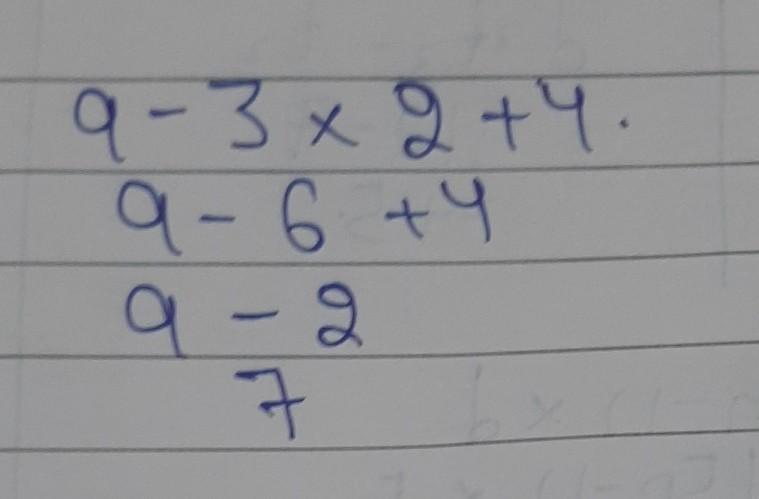 9 - 3 × 2 + 4.
9 - 6 + 4
9 - 2
7